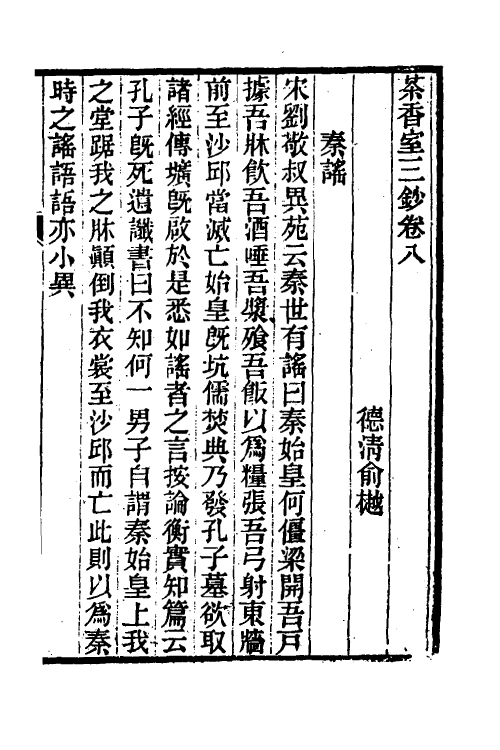 茶香室三鈔卷八
德淸俞樾
秦謠
宋劉敬叔異苑云秦世有謠曰秦始皇何僵梁開吾戸
據吾牀飮吾酒唾吾漿飱吾飯以爲糧張吾弓射東牆
前至沙邱當滅亡始皇旣坑儒焚典乃發孔子墓欲取
諸經傳壙旣啟於是悉如謠者之言按論衡實知篇云
孔子旣死遺讖書曰不知何一男子自謂秦始皇上我
之堂踞我之牀顚倒我衣裳至沙邱而亡此則以爲秦
時之謠語語亦小異